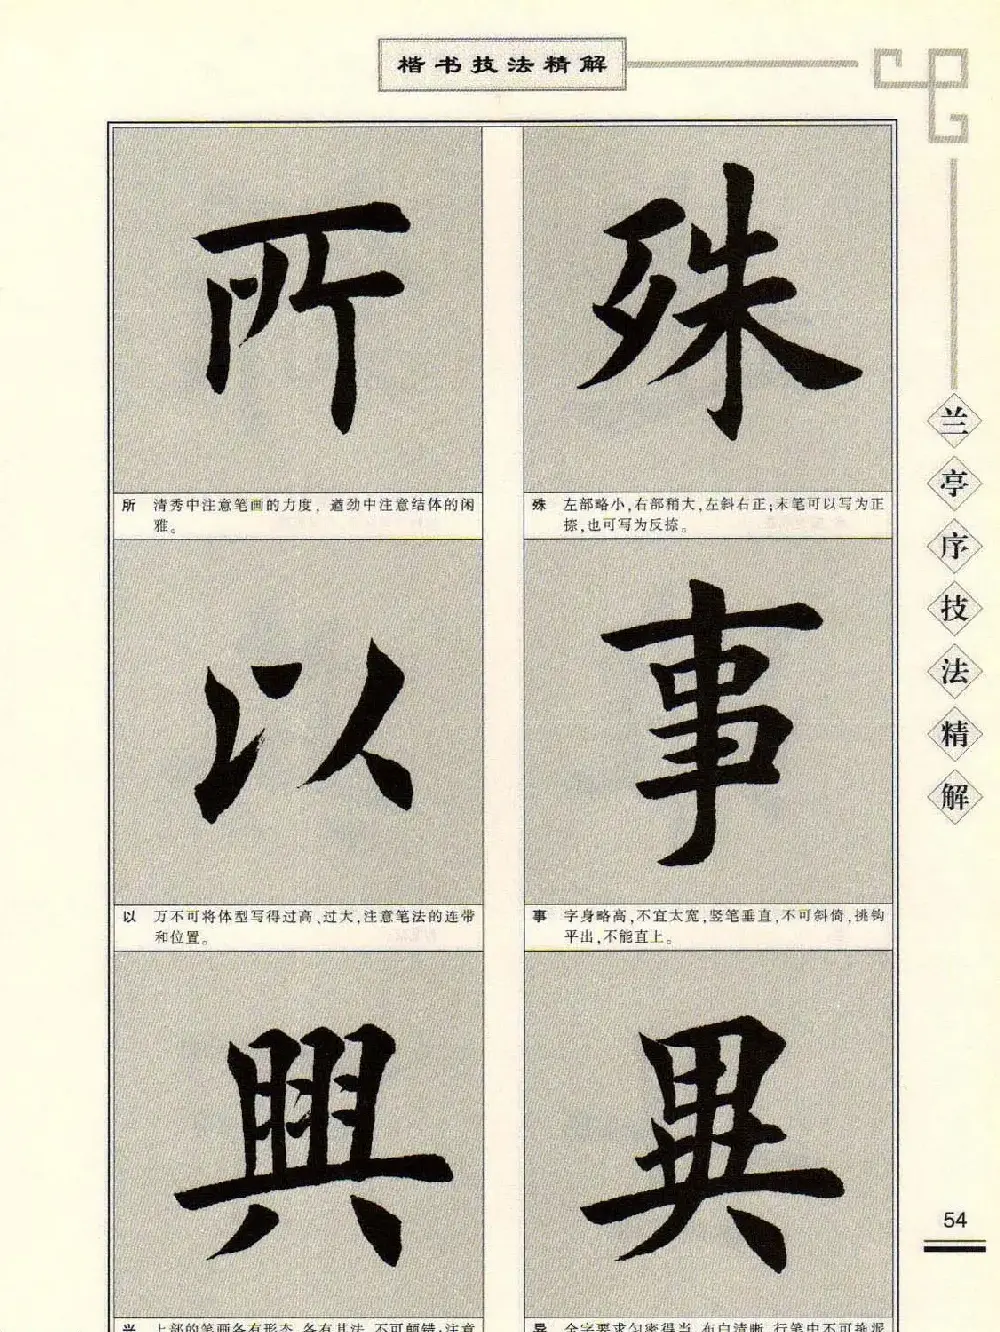 楷书技法精解
殊
殊 左部略小,右部稍大,左斜右正;末笔可以写为正
捺,也可写为反捺。
事
事 字身略高,不宜太宽,竖笔垂直,不可斜倚,挑钩
平出,不能直上。
異
异 全字要求匀密得当,布白清晰,行笔中不可拖泥
所
所 清秀中注意笔画的力度,遒劲中注意结体的闲
雅。
以
以 万不可将体型写得过高、过大,注意笔法的连带
和位置。
興
兴 上部的笔画各有形态,各有其法,不可颠错;注意
兰亭序技法精解
54